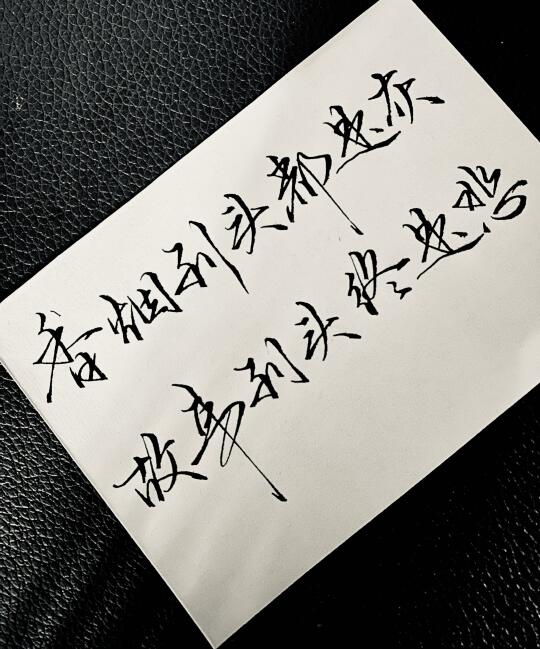 香烟到头都是灰
故事到头终是悲